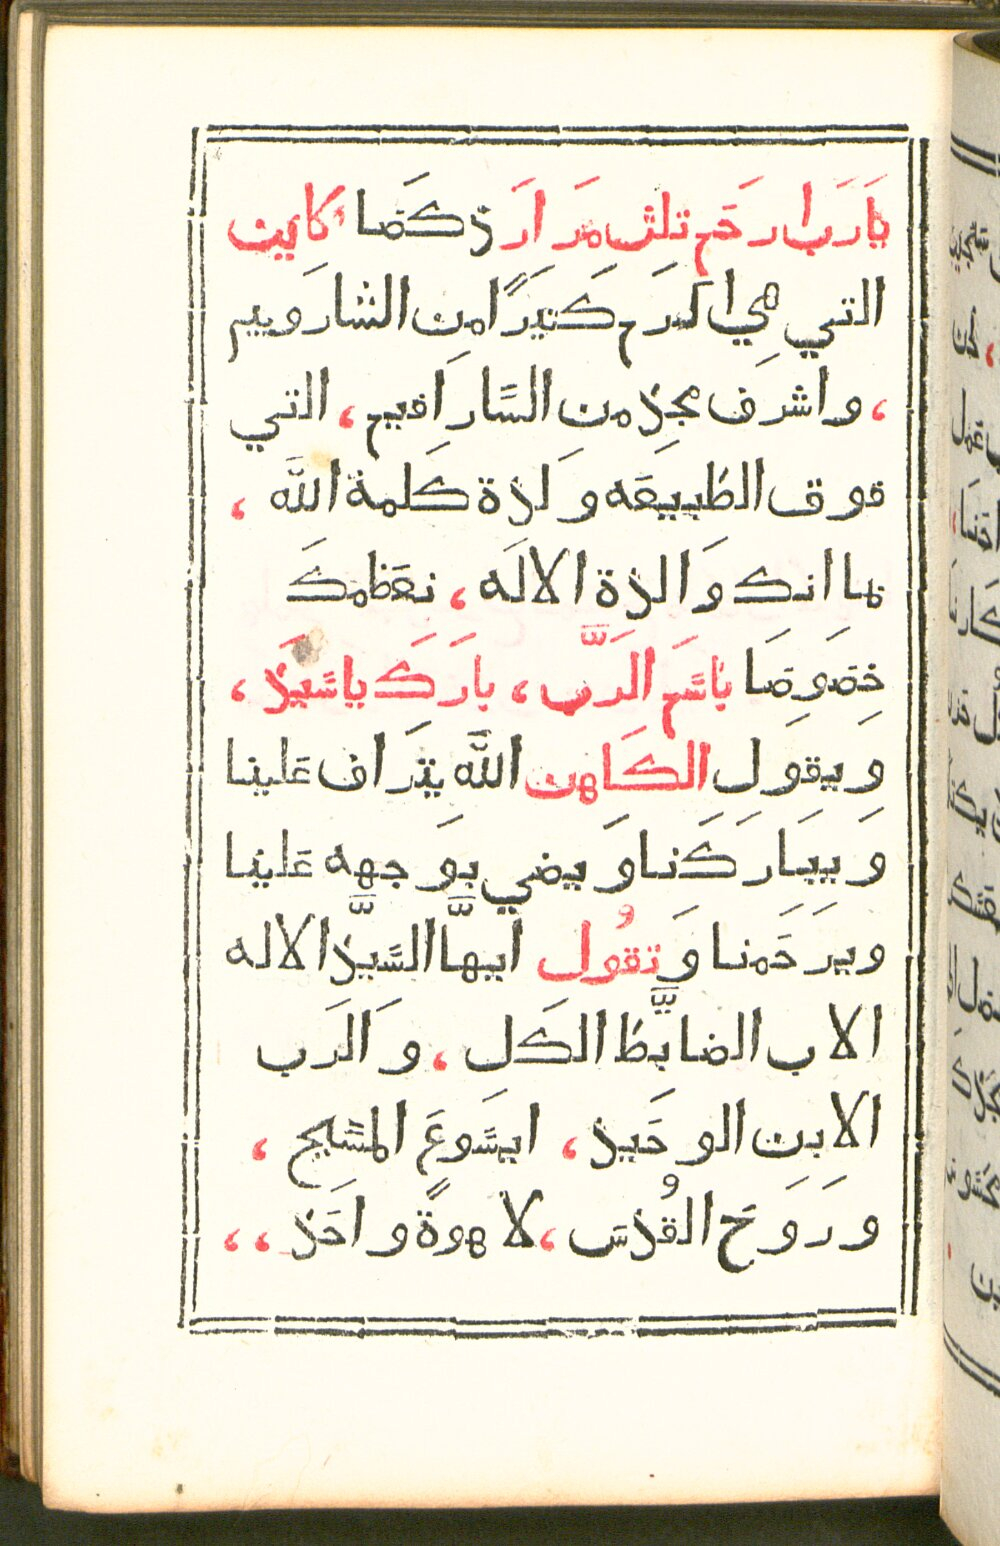 يَارَب ارحَم تلث مَرارَ ذكصَا كاين
التي هي اكرَم كَتيرًا من الشاروبيم
، واشرف مجذ من السَّارافيم ، التي
فوق الطبيعَه ولاذة كلمة اللَّه ،
ما انك وَالذة الالَه ، نعَظمكَ
خصَوصَا باسَم الرَّب ، بارَكَ ياسَيذ ،
ويقول الكَاهن اللَّه يترَاف عَلينا
وَيبَاركَنا وَ يضي بوَجهه عَلينا
ويرحَمنا وَ تقُول ايهَّا السَّيذ الاله
الاب الضابَّط الكَل ، وَالرَب
الابن الوحَيذ ، ايسَوعَ المسَّيح ،
ورَوحَ القُذسَ ، لاهوةً واحَذ ، ،